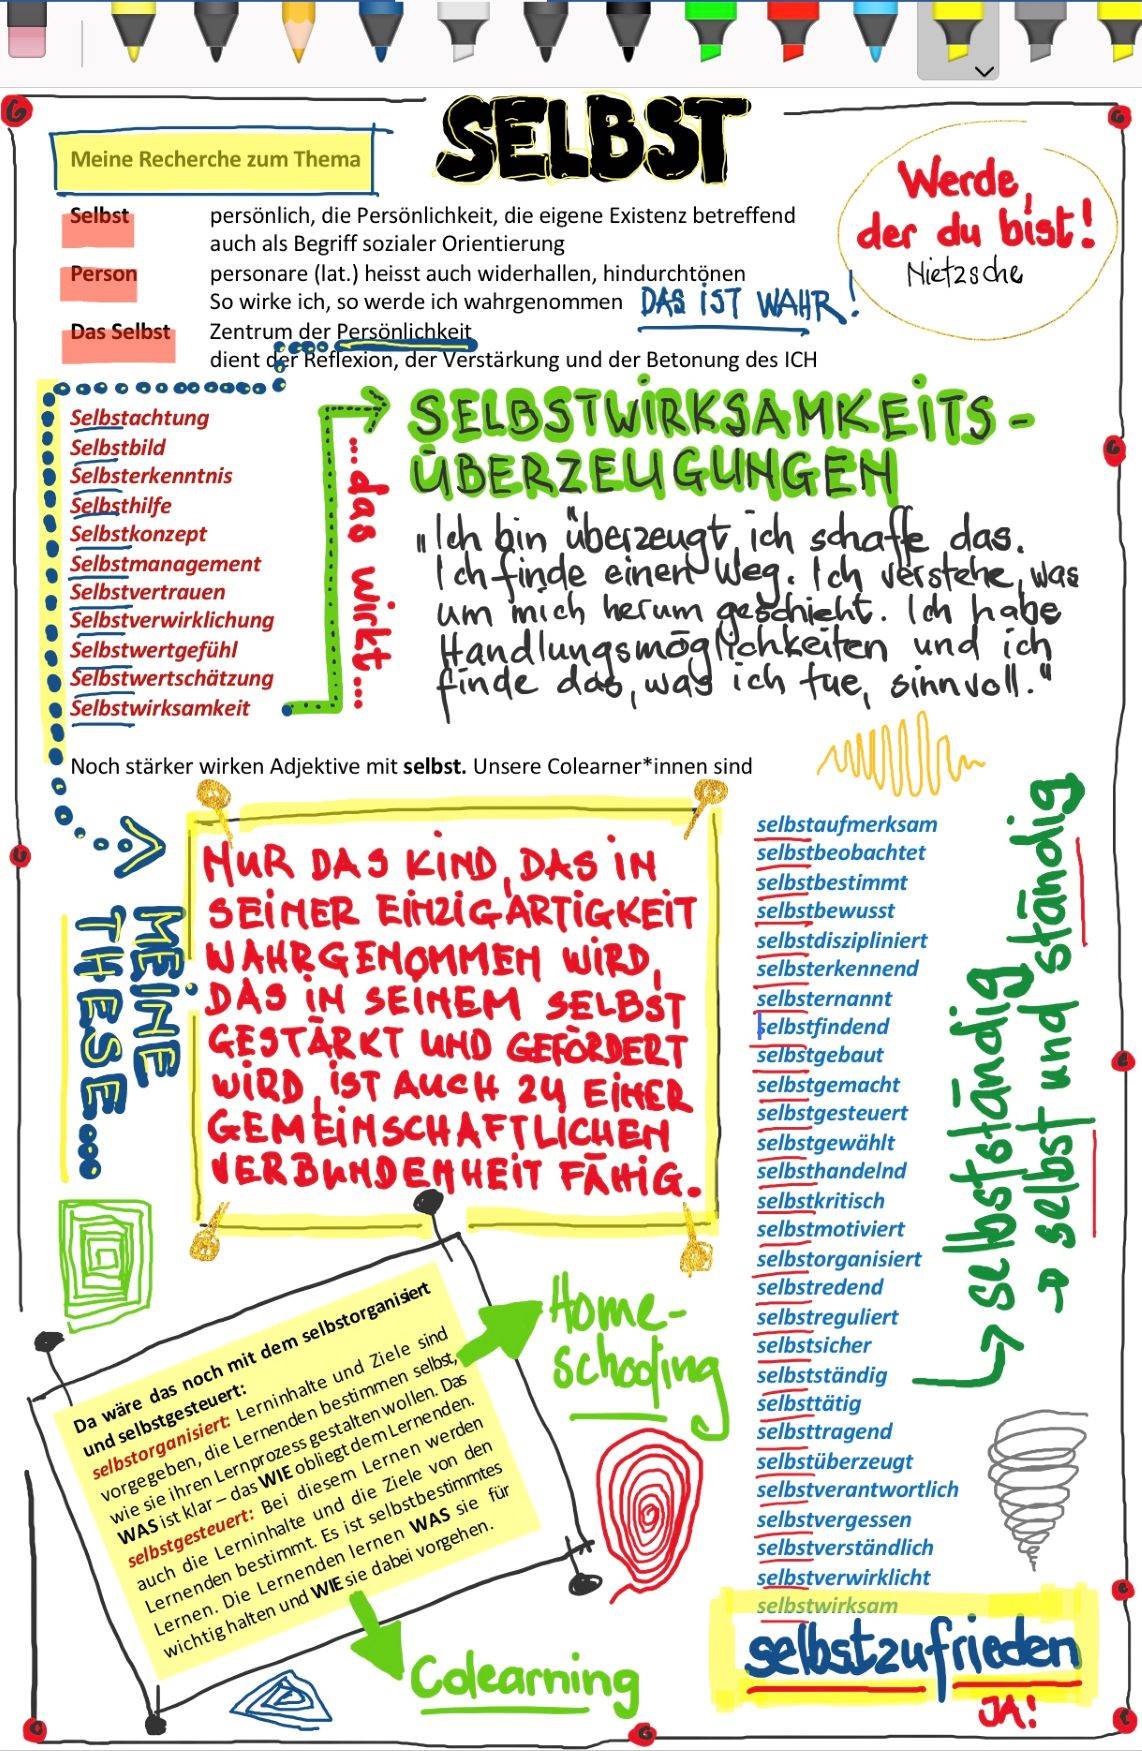 SELBST
Meine Recherche zum Thema
Werde,
der du bist!
Nietzsche
Selbst persönlich, die Persönlichkeit, die eigene Existenz betreffend
auch als Begriff sozialer Orientierung
Person personare (lat.) heisst auch widerhallen, hindurchtönen
So wirke ich, so werde ich wahrgenommen DAS iST WAHR!
Das Selbst Zentrum der Persönlichkeit
dient der Reflexion, der Verstärkung und der Betonung des ICH
Selbstachtung
Selbstbild
Selbsterkenntnis
Selbsthilfe
Selbstkonzept
Selbstmanagement
Selbstvertrauen
Selbstverwirklichung
Selbstwertgefühl
Selbstwertschätzung
Selbstwirksamkeit
...das wirkt...
SELBSTWiRKSAMKEiTS-
ÜBERZEUGUNGEN
„Ich bin überzeugt ich schaffe das.
Ich finde einen Weg. Ich verstehe, was
um mich herum geschieht. Ich habe
Handlungsmöglichkeiten und ich
finde das, was ich tue, sinnvoll."
Noch stärker wirken Adjektive mit selbst. Unsere Colearner*innen sind
MEiNE
THESE...
NUR DAS KIND, DAS IN
SEiNER EiNZiGARTiGKEiT
WAHRGENOMMEN WiRD,
DAS iN SEiNEM SELBST
GESTÄRKT UND GEFÖRDERT
WiRD, iST AUCH ZU EiNER
GEMEiNSCHAFTLiCHEN
VERBUNDENHEiT FÄHiG.
selbstaufmerksam
selbstbeobachtet
selbstbestimmt
selbstbewusst
selbstdiszipliniert
selbsterkennend
selbsternannt
selbstfindend
selbstgebaut
selbstgemacht
selbstgesteuert
selbstgewählt
selbsthandelnd
selbstkritisch
selbstmotiviert
selbstorganisiert
selbstredend
selbstreguliert
selbstsicher
selbstständig
selbsttätig
selbsttragend
selbstüberzeugt
selbstverantwortlich
selbstvergessen
selbstverständlich
selbstverwirklicht
selbstwirksam
selbstzufrieden
JA!
selbstständig
→ selbst und ständig
Da wäre das noch mit dem selbstorganisiert
und selbstgesteuert:
selbstorganisiert: Lerninhalte und Ziele sind
vorgegeben, die Lernenden bestimmen selbst,
wie sie ihren Lernprozess gestalten wollen. Das
WAS ist klar – das WIE obliegt dem Lernenden.
selbstgesteuert: Bei diesem Lernen werden
auch die Lerninhalte und die Ziele von den
Lernenden bestimmt. Es ist selbstbestimmtes
Lernen. Die Lernenden lernen WAS sie für
wichtig halten und WIE sie dabei vorgehen.
Home-
schooling
Colearning